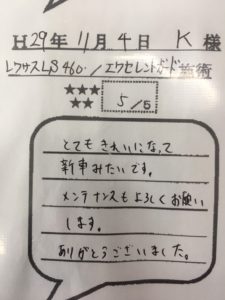 H29年11月4日 K様
レクサスLS460./エクセレントガード施術
★★★
★★
5/5
とてもきれいになって
新車みたいです。
メンテナンスもよろしくお願い
します。
ありがとうございました。